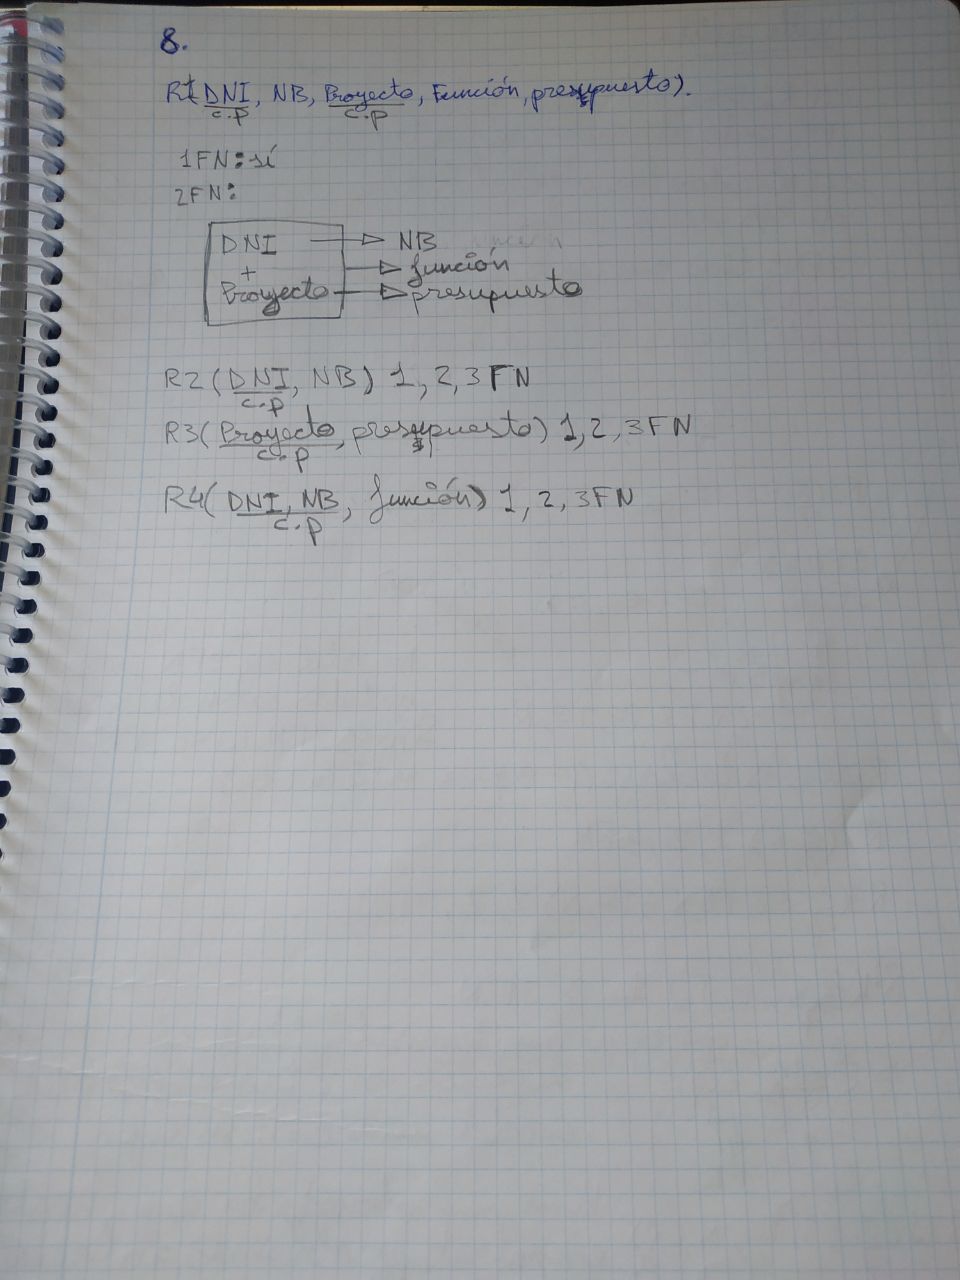 8.
R1(DNI, NB, Proyecto, Función, presupuesto).
c.p c.p
1FN: sí
2FN:
DNI → NB
+ → función
Proyecto → presupuesto
R2(DNI, NB) 1, 2, 3 FN
c.p
R3(Proyecto, presupuesto) 1, 2, 3 FN
c.p
R4(DNI, NB, función) 1, 2, 3 FN
c.p